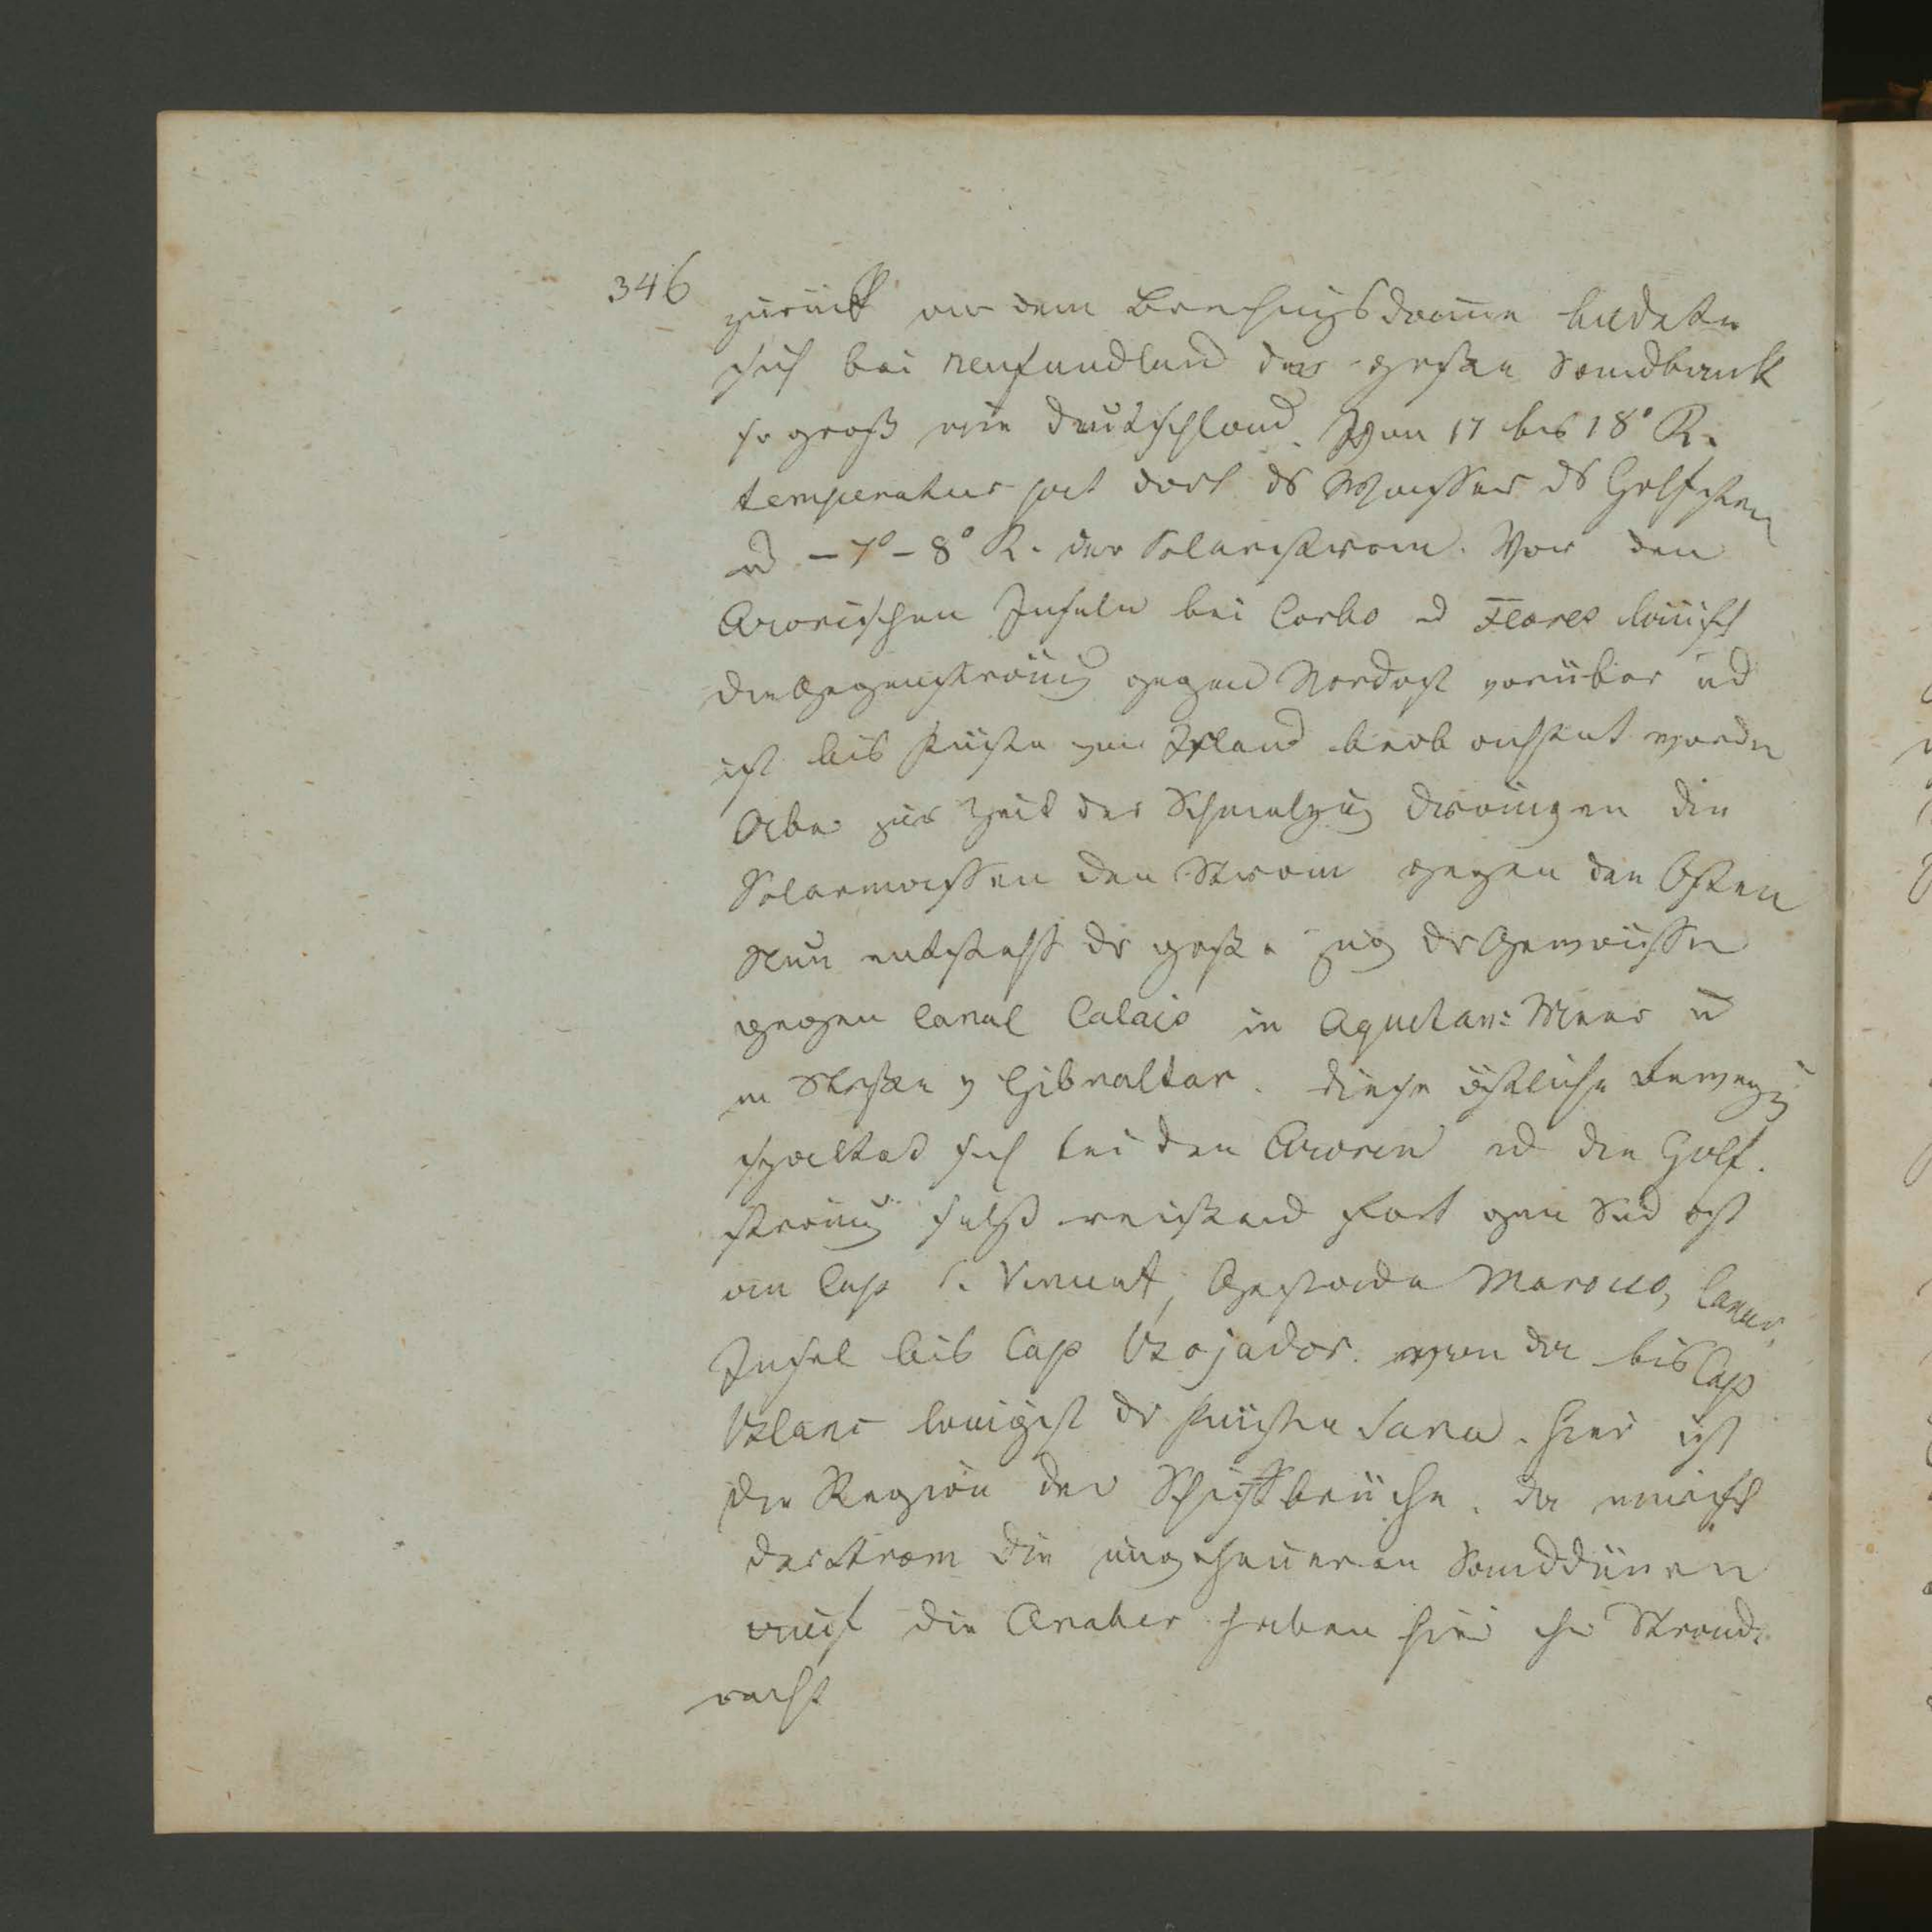 346
zurück an dem Brechungsdamme bildete
sich bei neufundland die große Sandbank
so groß wie Deutschland. Von 17 bis 18° R.
temperatur hat dort ds Wasser ds Golfstrom
ud – 7° – 8° R. der Polarstrom. Vor den
Azorischen Inseln bei Corvo ud Flores läuft
die Gegenströmg gegen Nordost vorüber ud
ist bis Küste von Irland beobachtet worden
Aber zur Zeit der Schmelzug drängen die
Polarmassen den Strom gegen den Osten
Nun entsteht dr große Zug dr Gewässer
gegen Canal Calais in Aquitan: Meer u
in Straße v Gibraltar. Diese östliche Bewegg
spaltet sich bei den Azoren ud die Golf.
strömg selbst reißend fort gen Süd ost
am Cap S. Vincent, Gestade Marocco, Canar.
Insel bis Cap Bojador. von da bis Cap
Blanc längst dr Küsten Sara. hier ist
die Region der Schiffbrüche. da wirft
der Strom die ungeheueren Sanddünen
auf die Araber haben hier ihr Strand.
recht